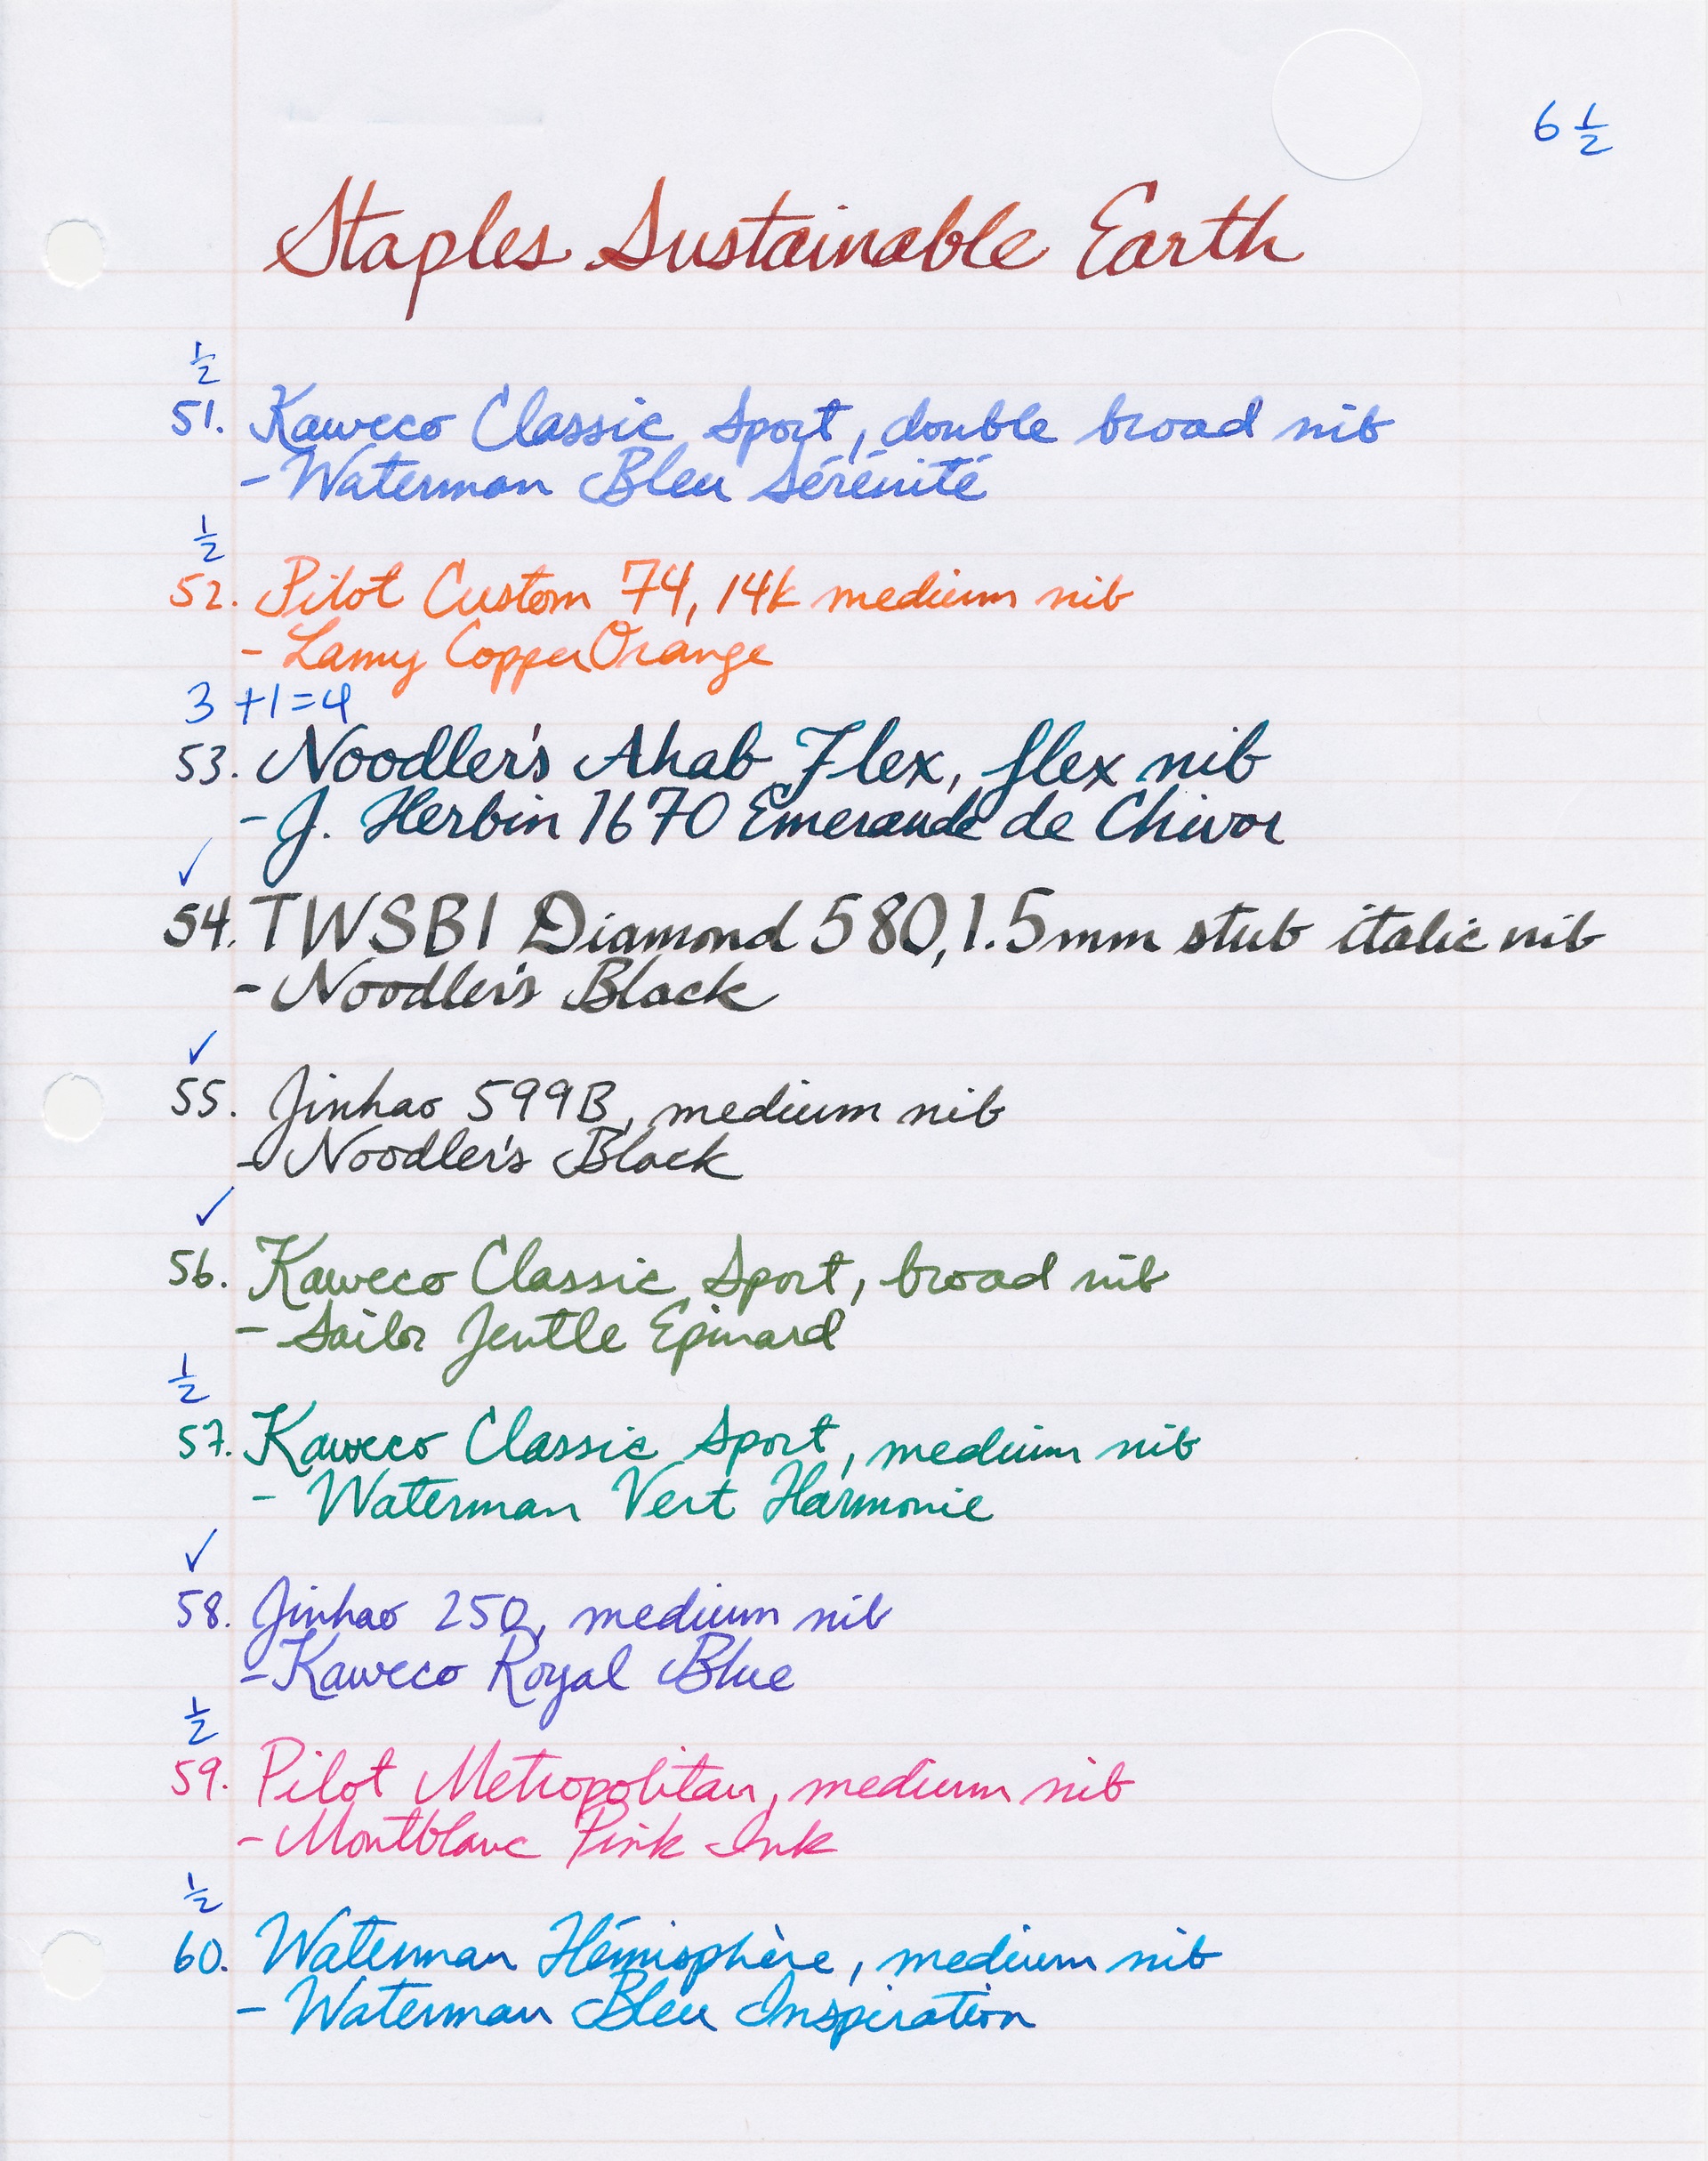 6 1/2
Staples Sustainable Earth
1/2
51. Kaweco Classic Sport, double broad nib
- Waterman Bleu Sérénité
1/2
52. Pilot Custom 74, 14k medium nib
- Lamy Copper Orange
3 +1=4
53. Noodler's Ahab Flex, flex nib
- J. Herbin 1670 Emeraude de Chivor
✓
54. TWSBI Diamond 580, 1.5mm stub italic nib
- Noodler's Black
✓
55. Jinhao 599B, medium nib
- Noodler's Black
✓
56. Kaweco Classic Sport, broad nib
- Sailor Jentle Epinard
1/2
57. Kaweco Classic Sport, medium nib
- Waterman Vert Harmonie
✓
58. Jinhao 250, medium nib
- Kaweco Royal Blue
1/2
59. Pilot Metropolitan, medium nib
- Montblanc Pink Ink
1/2
60. Waterman Hémisphère, medium nib
- Waterman Bleu Inspiration